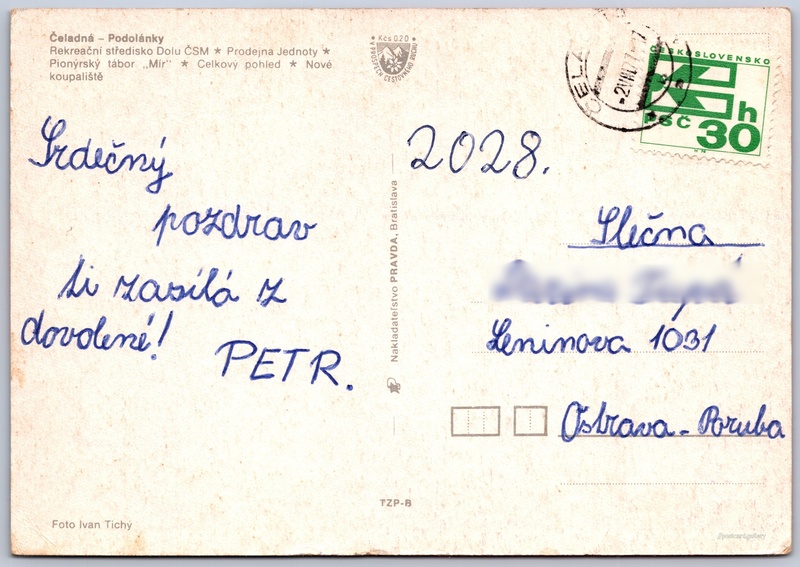 Čeladná – Podolánky
Rekreační středisko Dolu ČSM ★ Prodejna Jednoty ★
Pionýrský tábor „Mír" ★ Celkový pohled ★ Nové
koupaliště
Kčs 0,20
V PROSPĚCH CESTOVNÍHO RUCHU
ČESKOSLOVENSKO
h
PSČ 30
Srdečný
pozdrav
ti zasílá z
dovolené!
PETR.
Nakladatelství PRAVDA, Bratislava
2028.
Slečna
Leninova 1031
Ostrava - Poruba
TZP-B
Foto Ivan Tichý